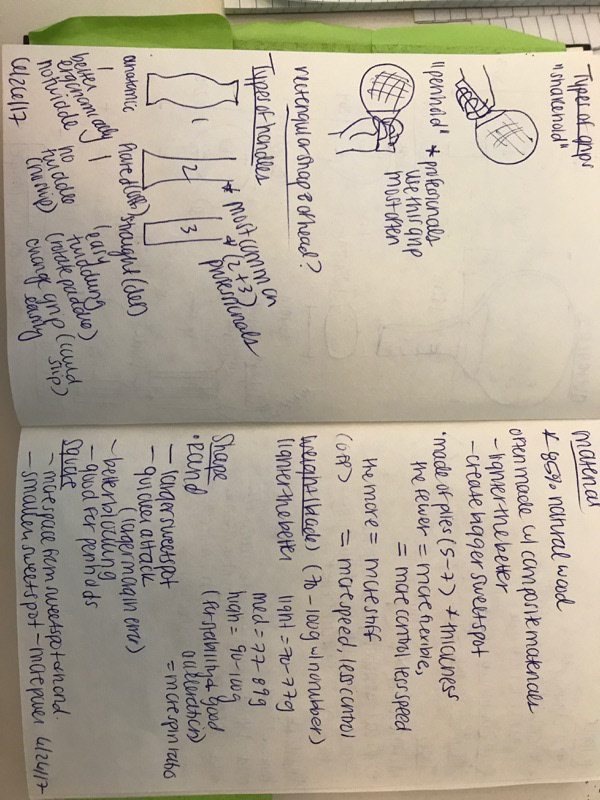 Types of grips
"shakehold"
"penhold" * professionals
use this grip
most often
rectangular shape of head?
Types of handles
1
2
3
* most common
* (2+3)
professionals
anatomic
flared (lots)
straight (def)
better
ergonomically
not twiddle
no
twiddle
(no slip)
easy
twiddling
(rotate paddle)
change grip (could
easily slip)
6/26/17
material
* 85% natural wood
often made w/ composite materials
- lighter the better
- create bigger sweetspot
• made of plies (5-7) * thickness
the fewer = more flexible,
= more control less speed
the more = more stiff
(off) = more speed, less control
weight (blade) (70-100g w/ no rubber)
lighter the better
light = 70-77g
med = 77-89g
high = 90-100g
(for stability & good
acceleration)
Shape
• round
- larger sweetspot
- quicker attack = more spin
(larger margin error)
- better blocking
- good for penholds
square
- more space from sweetspot and
- smaller sweetspot - more power
6/26/17